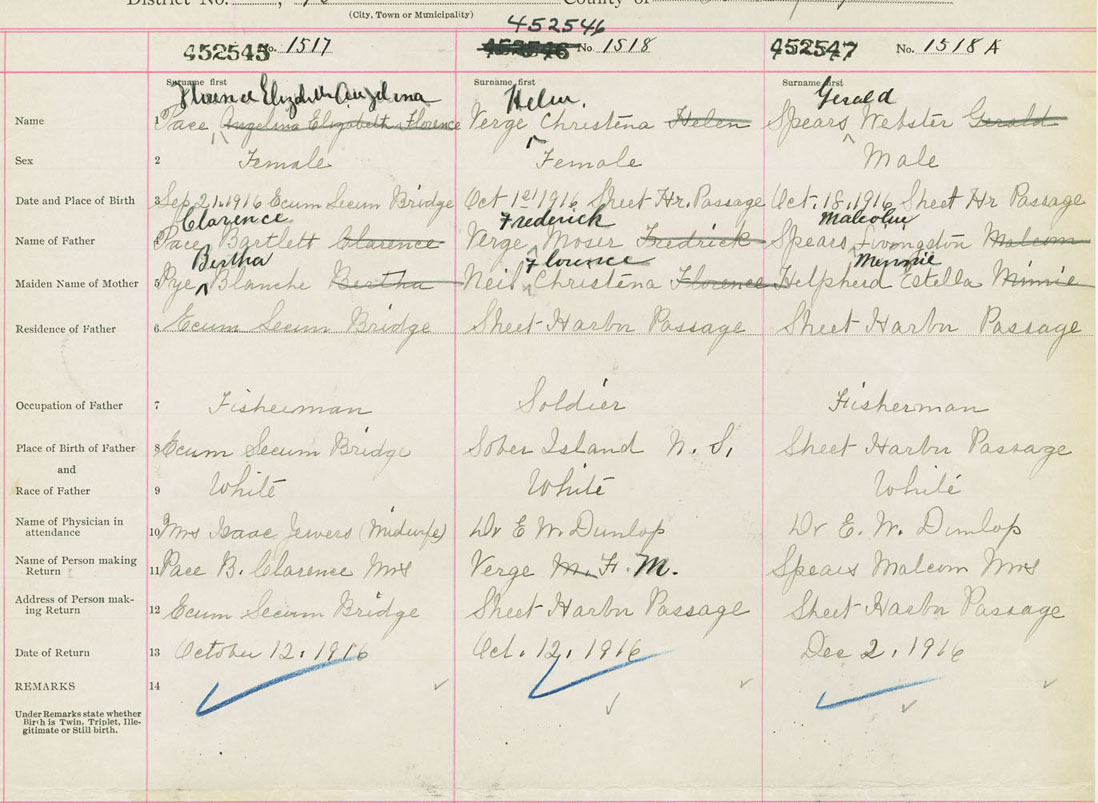 District No.
County of
(City, Town or Municipality)
452545 No. 1517
452546
452546 No 1518
452547 No. 1518 A
Surname first
Surname first
Surname first
Elizabeth Angelina
Helen.
Gerald
Name 1 Pace Angelina Elizabeth Florence
Verge Christena Helen
Spears Webster Gerald
Sex 2 Female
Female
Male
Date and Place of Birth 3 Sep. 21. 1916 Ecum Secum Bridge
Oct 1st 1916 Sheet Hr. Passage
Oct. 18. 1916 Sheet Hr Passage
Clarence
Frederick
Malcolm
Name of Father Pace Bartlett Clarence
Verge Moser Fredrick
Spears Malcom
Bertha
Florence
Minnie
Maiden Name of Mother 5 Pye Blanche Bertha
Neil Christena Florence
Helpherd Estella Minnie
Residence of Father 6 Ecum Secum Bridge
Sheet Harbor Passage
Sheet Harbor Passage
Occupation of Father 7 Fisherman
Soldier
Fisherman
Place of Birth of Father 8 Ecum Secum Bridge
Sober Island N. S.
Sheet Harbor Passage
and
Race of Father 9 White
White
White
Name of Physician in
attendance 10 Mrs Isaac Jewers (Midwife)
Dr E. W. Dunlop
Dr E. W. Dunlop
Name of Person making
Return 11 Pace B. Clarence Mrs
Verge M. F. M.
Spears Malcom Mrs
Address of Person mak-
ing Return 12 Ecum Secum Bridge
Sheet Harbor Passage
Sheet Harbor Passage
Date of Return 13 October 12. 1916
Oct. 12. 1916
Dec 2. 1916
REMARKS 14
Under Remarks state whether
Birth is Twin, Triplet, Ille-
gitimate or Still birth.